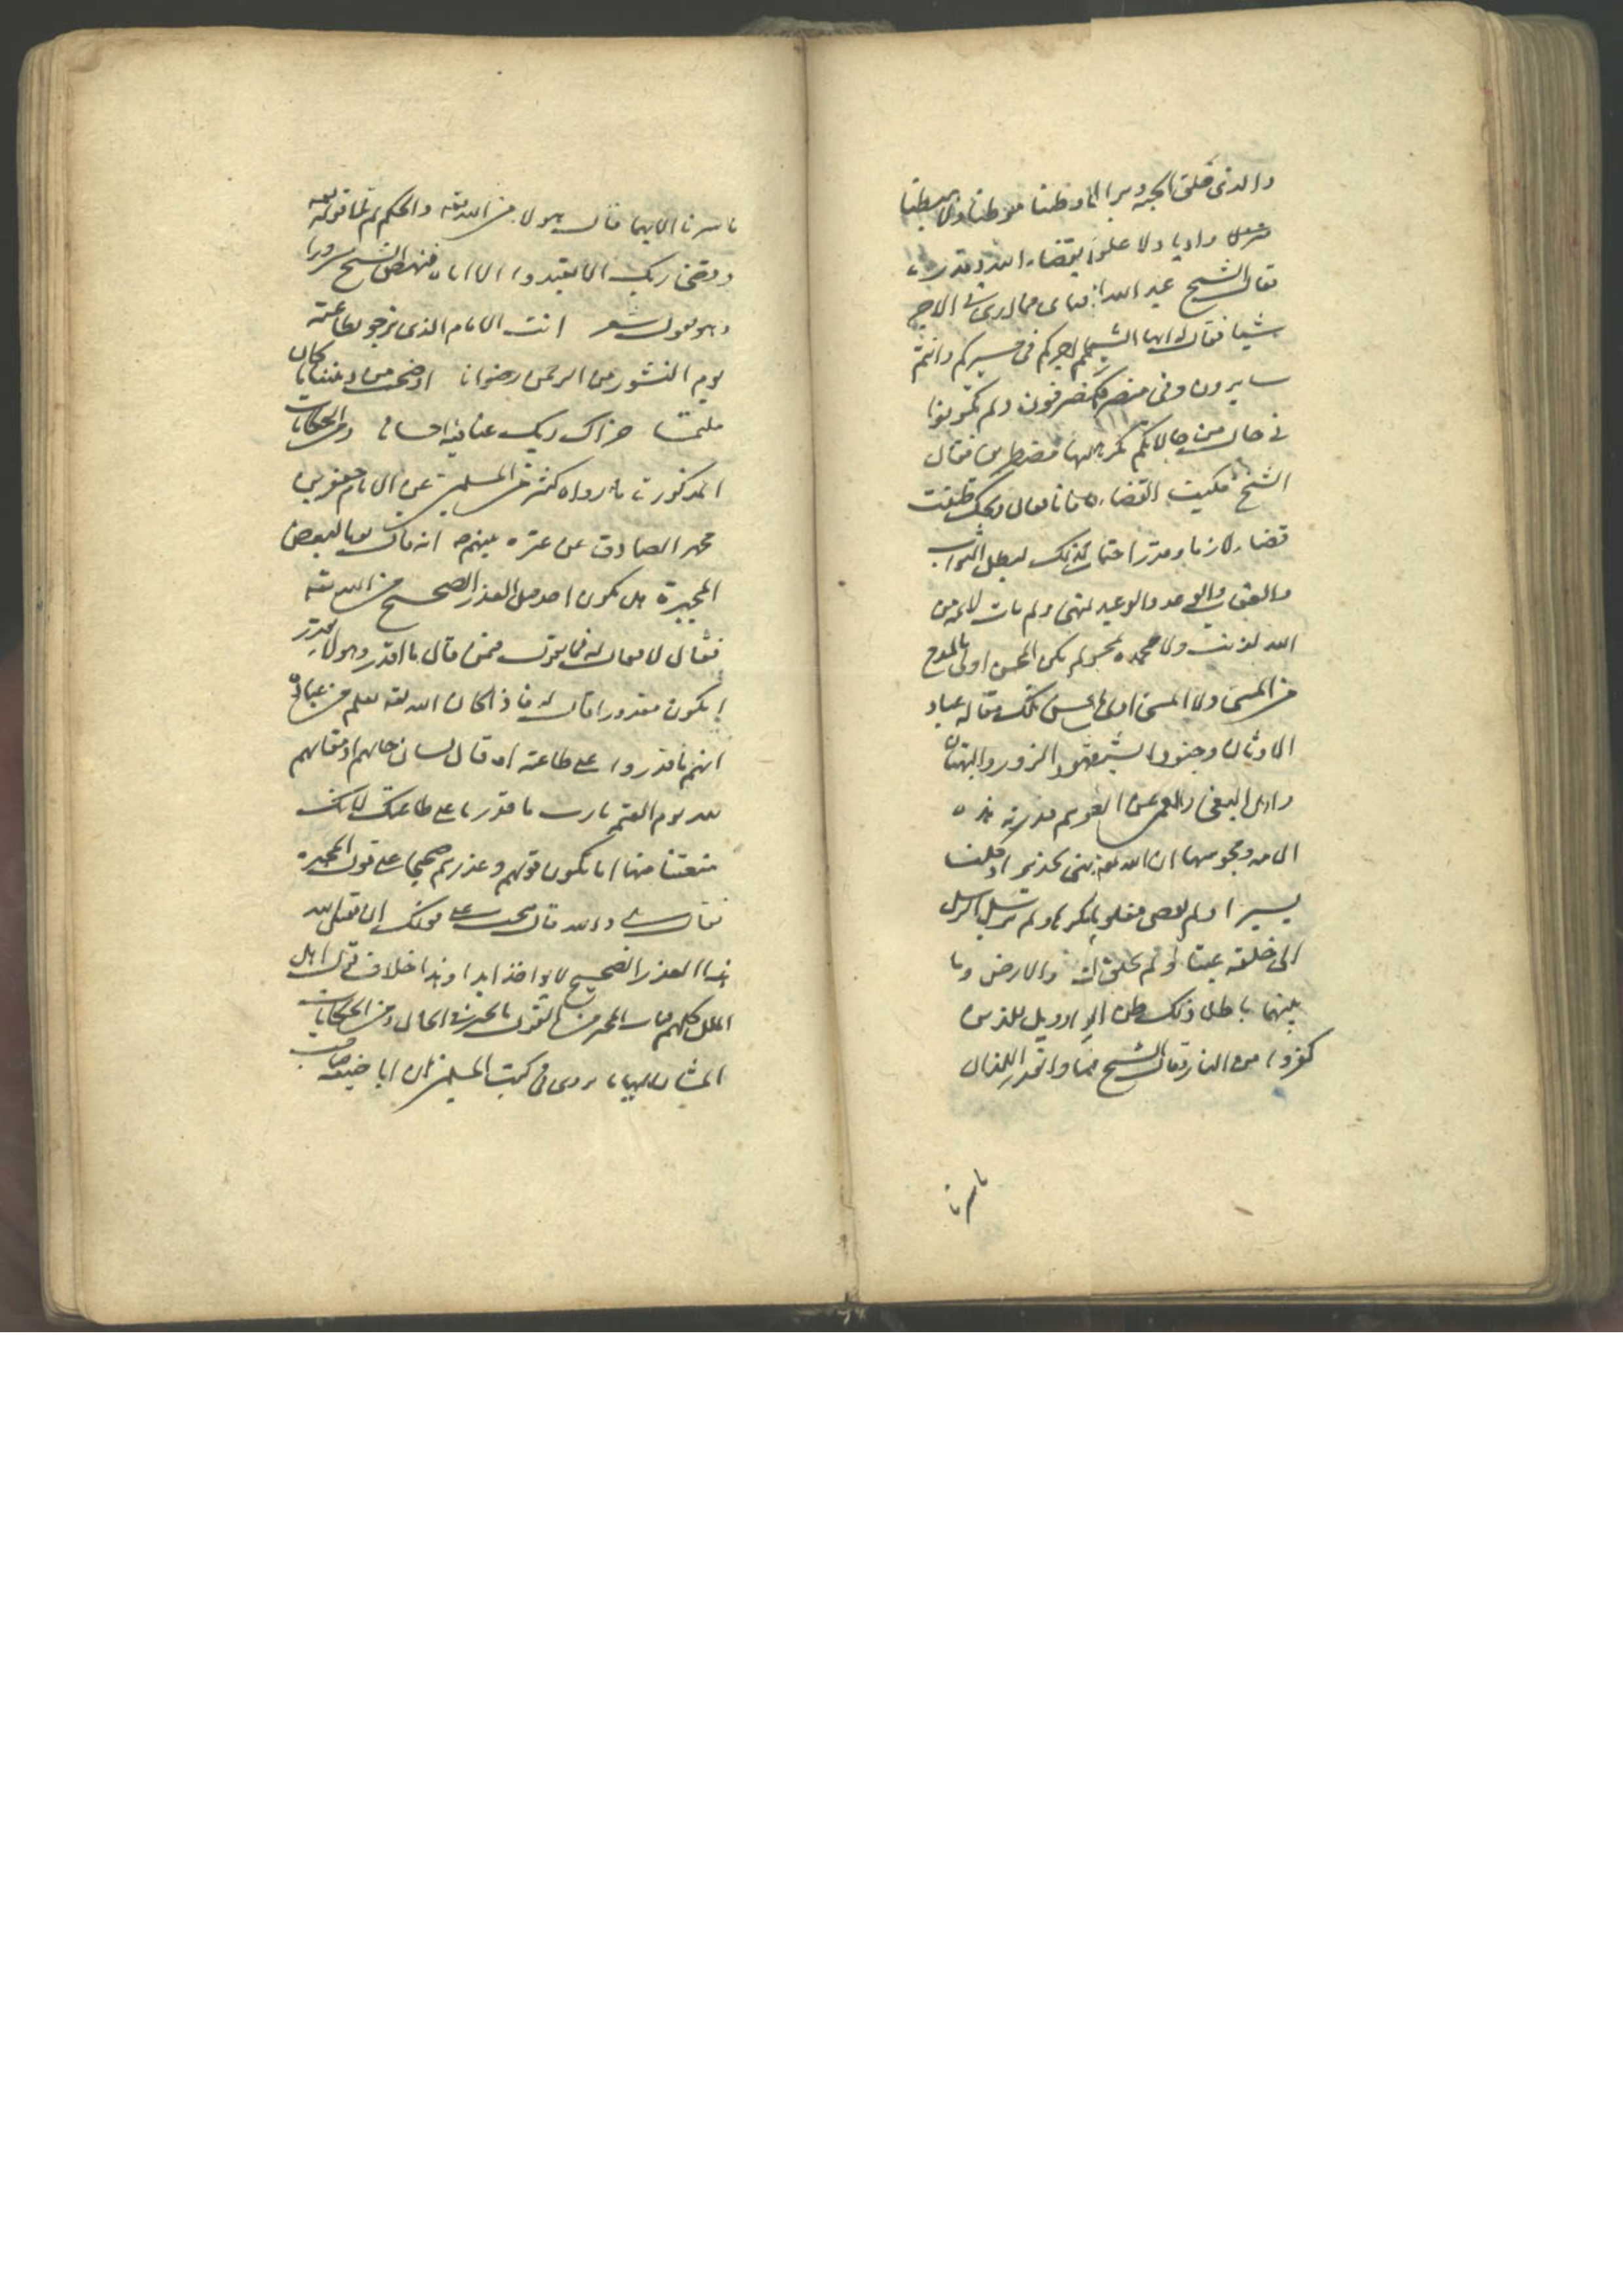 والذى فلق الحبة وبرا النا وطئنا موطئا ولا هبطنا
واديا ولا علونا الا بقضاء الله وقدره
فقال الشيخ عند الله عنائى ما ارى لى من الاجر
شيئا فقال له ايها الشيخ اجركم فى مسيركم وانتم
سايرون وفى منصرفكم وانتم منصرفون ولم تكونوا
فى حال من حالاتكم مكرهين ولا اليها مضطرين فقال
الشيخ فكيف القضاء ساقانا فقال ويحك ظننت
قضاء لازما وقدرا حتما لو كان كذلك لبطل الثواب
والعقاب والوعد والوعيد والنهى ولم تات لائمة من
الله لمذنب ولا محمدة لمحسن ولم يكن المحسن اولى بالمدح
من المسئ ولا المسئ اولى بالذم من المحسن تلك مقالة عباد
الاوثان وجنود الشيطان وشهود الزور والبهتان
واهل البغى والعمى عن الصواب هم قدرية هذه
الامة ومجوسها ان الله تعه نهى تحذيرا وكلف
يسيرا ولم يعص مغلوبا ولم يطع مكرها ولم يرسل الرسل
الى خلقه عبثا ولم يخلق السموات والارض وما
بينهما باطلا ذلك ظن الذين كفروا فويل للذين
كفروا من النار فقال الشيخ فما القضاء والقدر اللذان
ما سرنا
ما سرنا الا بهما قال هو الامر من الله تعه والحكم ثم تلا قوله تعه
وقضى ربك الا تعبدوا الا اياه فنهض الشيخ مسرورا
وهو يقول شعر انت الامام الذى نرجو بطاعته
يوم النشور من الرحمن رضوانا اوضحت من ديننا ما كان
ملتبسا جزاك ربك عنا فيه احسانا ومن الحكايات
المذكورة ما رواه كثير من المسلمين عن الامام جعفر بن
محمد الصادق عن عترة نبيهم انه قال يوما لبعض
المجبرة هل يكون احد اقبل للعذر الصحيح من الله تعه
فقال لا فقال له فما تقول فيمن قال ما اقدر وهو لا يقدر
ايكون معذورا قال له فاذا كان الله تعه يعلم من عباده
انهم ما قدروا على طاعته او قال لسان حالهم او مقالهم
لله يوم القيمة يا رب ما قدرنا على طاعتك لانك
منعتنا منها اما يكون قولهم وعذرهم صحيحا على قول المجبرة
فقال بلى والله قال فيجب على قولك ان الله يقبل
هذا العذر الصحيح لا يواخذ ابدا وهذا خلاف قول اهل
الملل كلهم فتاب المجبر من القول بالجبر فى الحال ومن الحكايات
المشار اليها ما روى فى كتب المسلمين ان ابا حنيفة صاحب